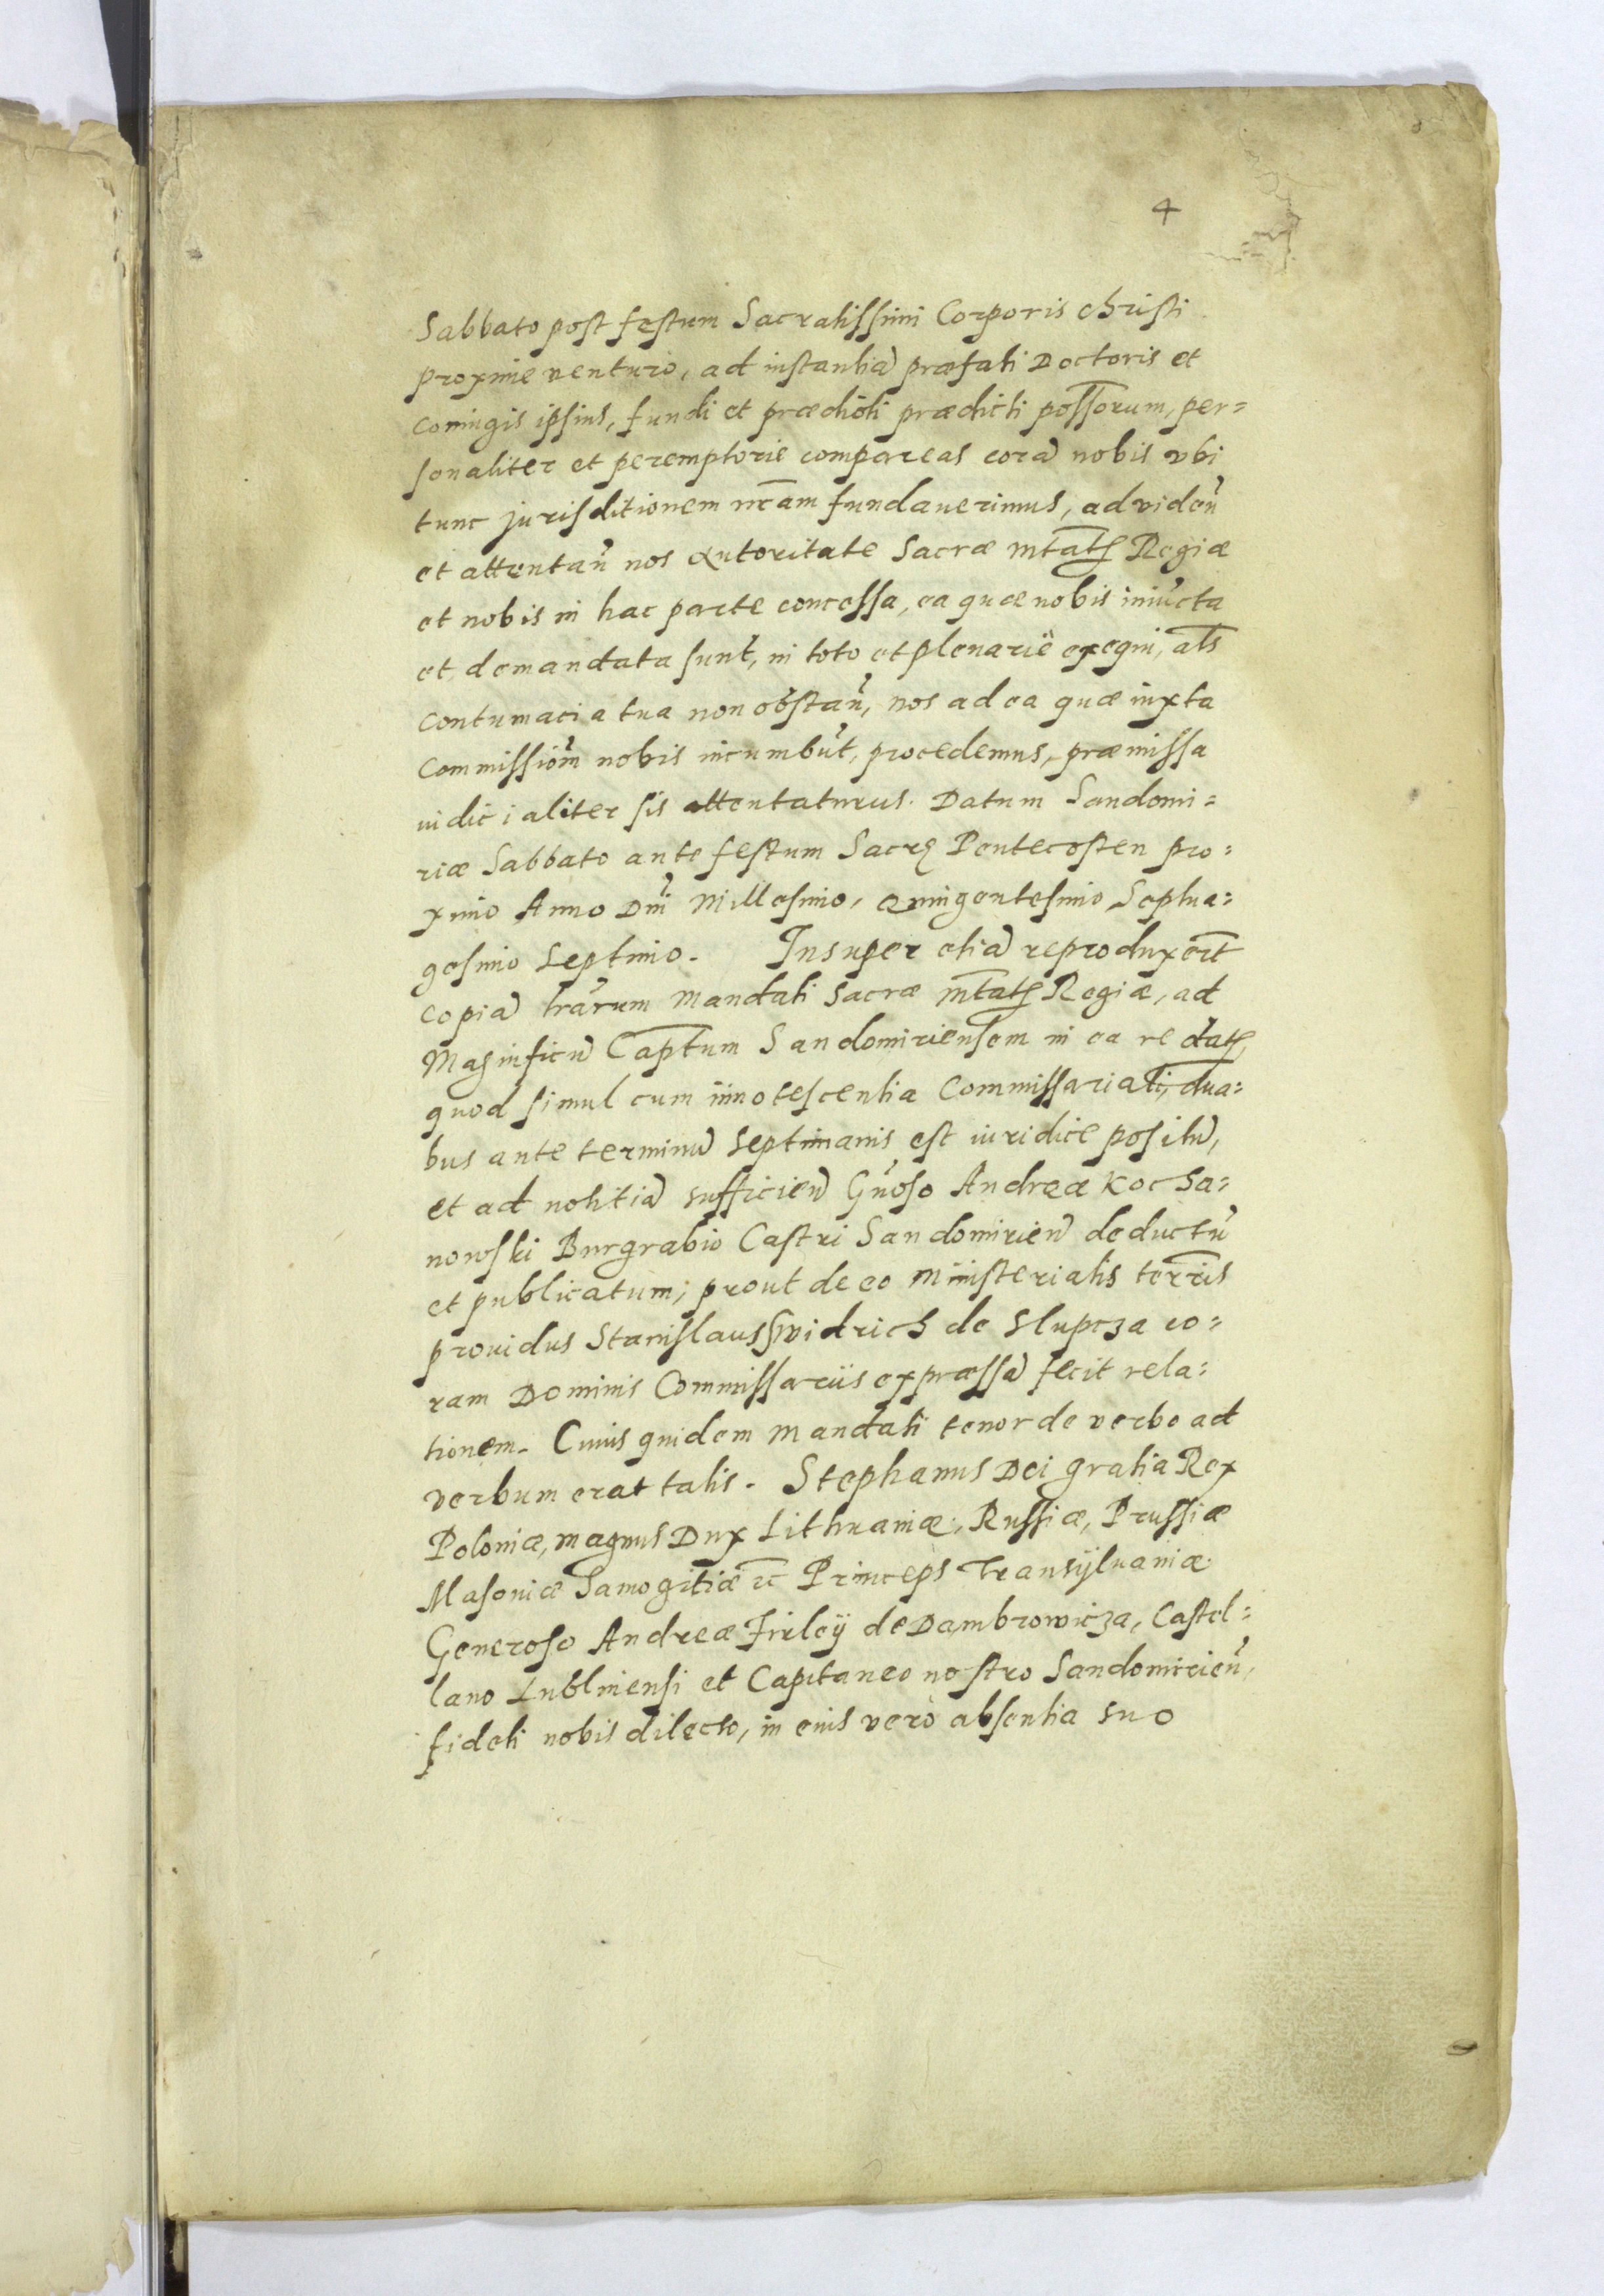 4
Sabbato post festum Sacratissimi Corporis christi
proxime venturo, ad instantiā præfati Doctoris et
coniugis ipsius, fundi et prædioli prædicti possorum, per=
sonaliter et peremptorie compareas corā nobis vbi
tunc jurisditionem nr̄am fundauerimus, ad viden̄
et attentan̄ nos autoritate Sacræ Mtatꝭ Regiæ
et nobis in hac parte concessa, ea quæ nobis iniūcta
et demandata sunt, in toto et plenariè exequi, als
contumacia tua non obstan̄, nos ad ea quæ iuxta
Commissiom̄ nobis incumbūt, procedemus, præmissa
iudicialiter sis attentaturus. Datum Sandomi=
riæ Sabbato ante festum Sacrę Pentecosten pro=
ximo Anno Dn̄i Millesimo, Quingentesimo Septua=
gesimo Septimo. Insuper etiā reproduxert̄
copiā lrārum Mandati Sacræ Mtatꝭ Regiæ, ad
Maginficū Captum Sandomiriensem in ea re datꝭ,
quod simul cum innotescentia Commissariali, dua=
bus ante terminū Septimanis est iuridice positū,
et ad notitiā sufficien̄ Gn̄oso Andreæ Kocha=
nowski Burgrabio Castri Sandomirien̄ deductū
et publicatum, prout de eo Ministerialis terrīs
prouidus Stanislaus Swidrich de Slupcza co=
ram Dominis Commissariis expræssā fecit rela=
tionem. Cuius quidem Mandati tenor de verbo ad
verbum erat talis. Stephanus Dei gratia Rex
Poloniæ, magnus Dux Lithuaniæ, Russiæ, Prussiæ
Masouiæ Samogitiæ ꝛc Princeps Transÿluaniæ.
Generoso Andreæ Firleÿ de Dambrowicza, Castel=
lano Lublinensi et Capitaneo nostro Sandomirien̄,
fideli nobis dilecto, in eius verò absentia suo